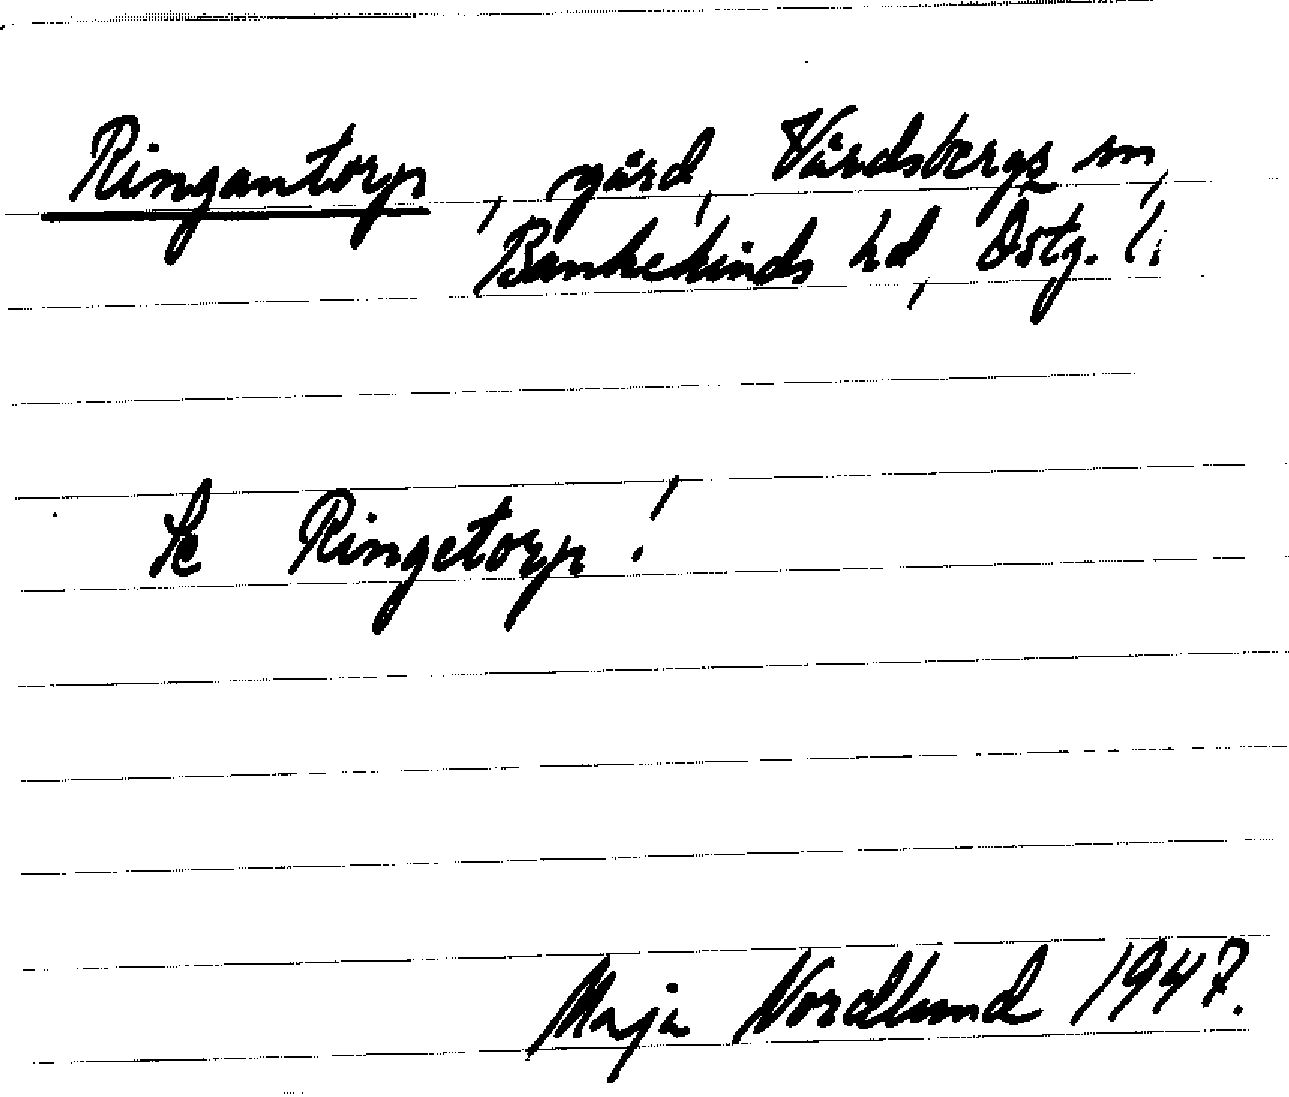 Ringantorp, gård, Vårdsbergs sn,
Bankekinds hd, Östg. l:
Se Ringetorp!
Maja Nordlund 1947.